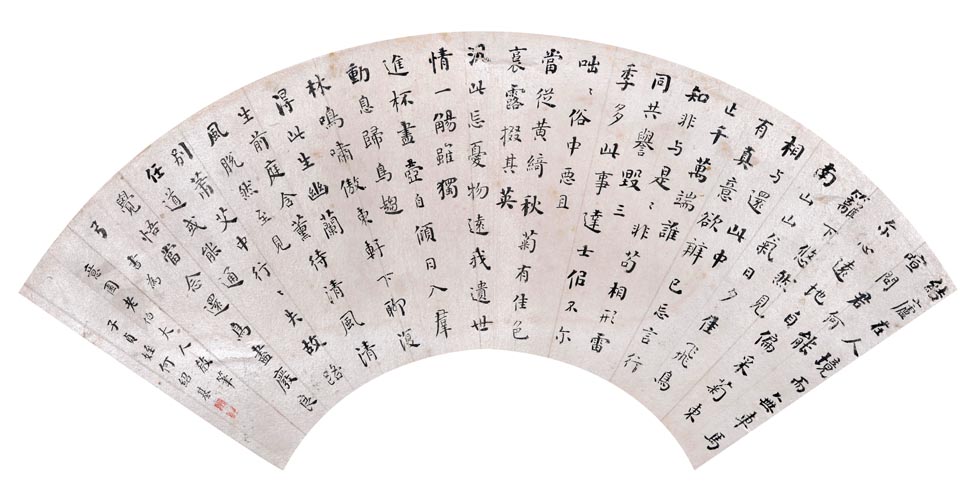 結廬在人境而無車馬
喧問君何能
尔心遠地自偏采菊東
籬下悠然見
南山山氣日夕佳飛鳥
相与還此中
有真意欲辨已忘言行
止千萬端誰
知非与是〻非苟相形雷
同共譽毀三
季多此事達士佀不尔
咄〻俗中惡且
當從黃綺 秋菊有佳色
裛露掇其英
汎此忘憂物遠我遺世
情一觴雖獨
進杯盡壺自傾日入羣
動息歸鳥趨
林鳴嘯傲東軒下聊復
得此生幽蘭
生前庭含薰待清風清
風脫然至見
別蕭艾中行〻失故路
任道或能通
覺悟當念還鳥盡廢良
弓 書為
意園老伯大人教
子貞姪何紹基